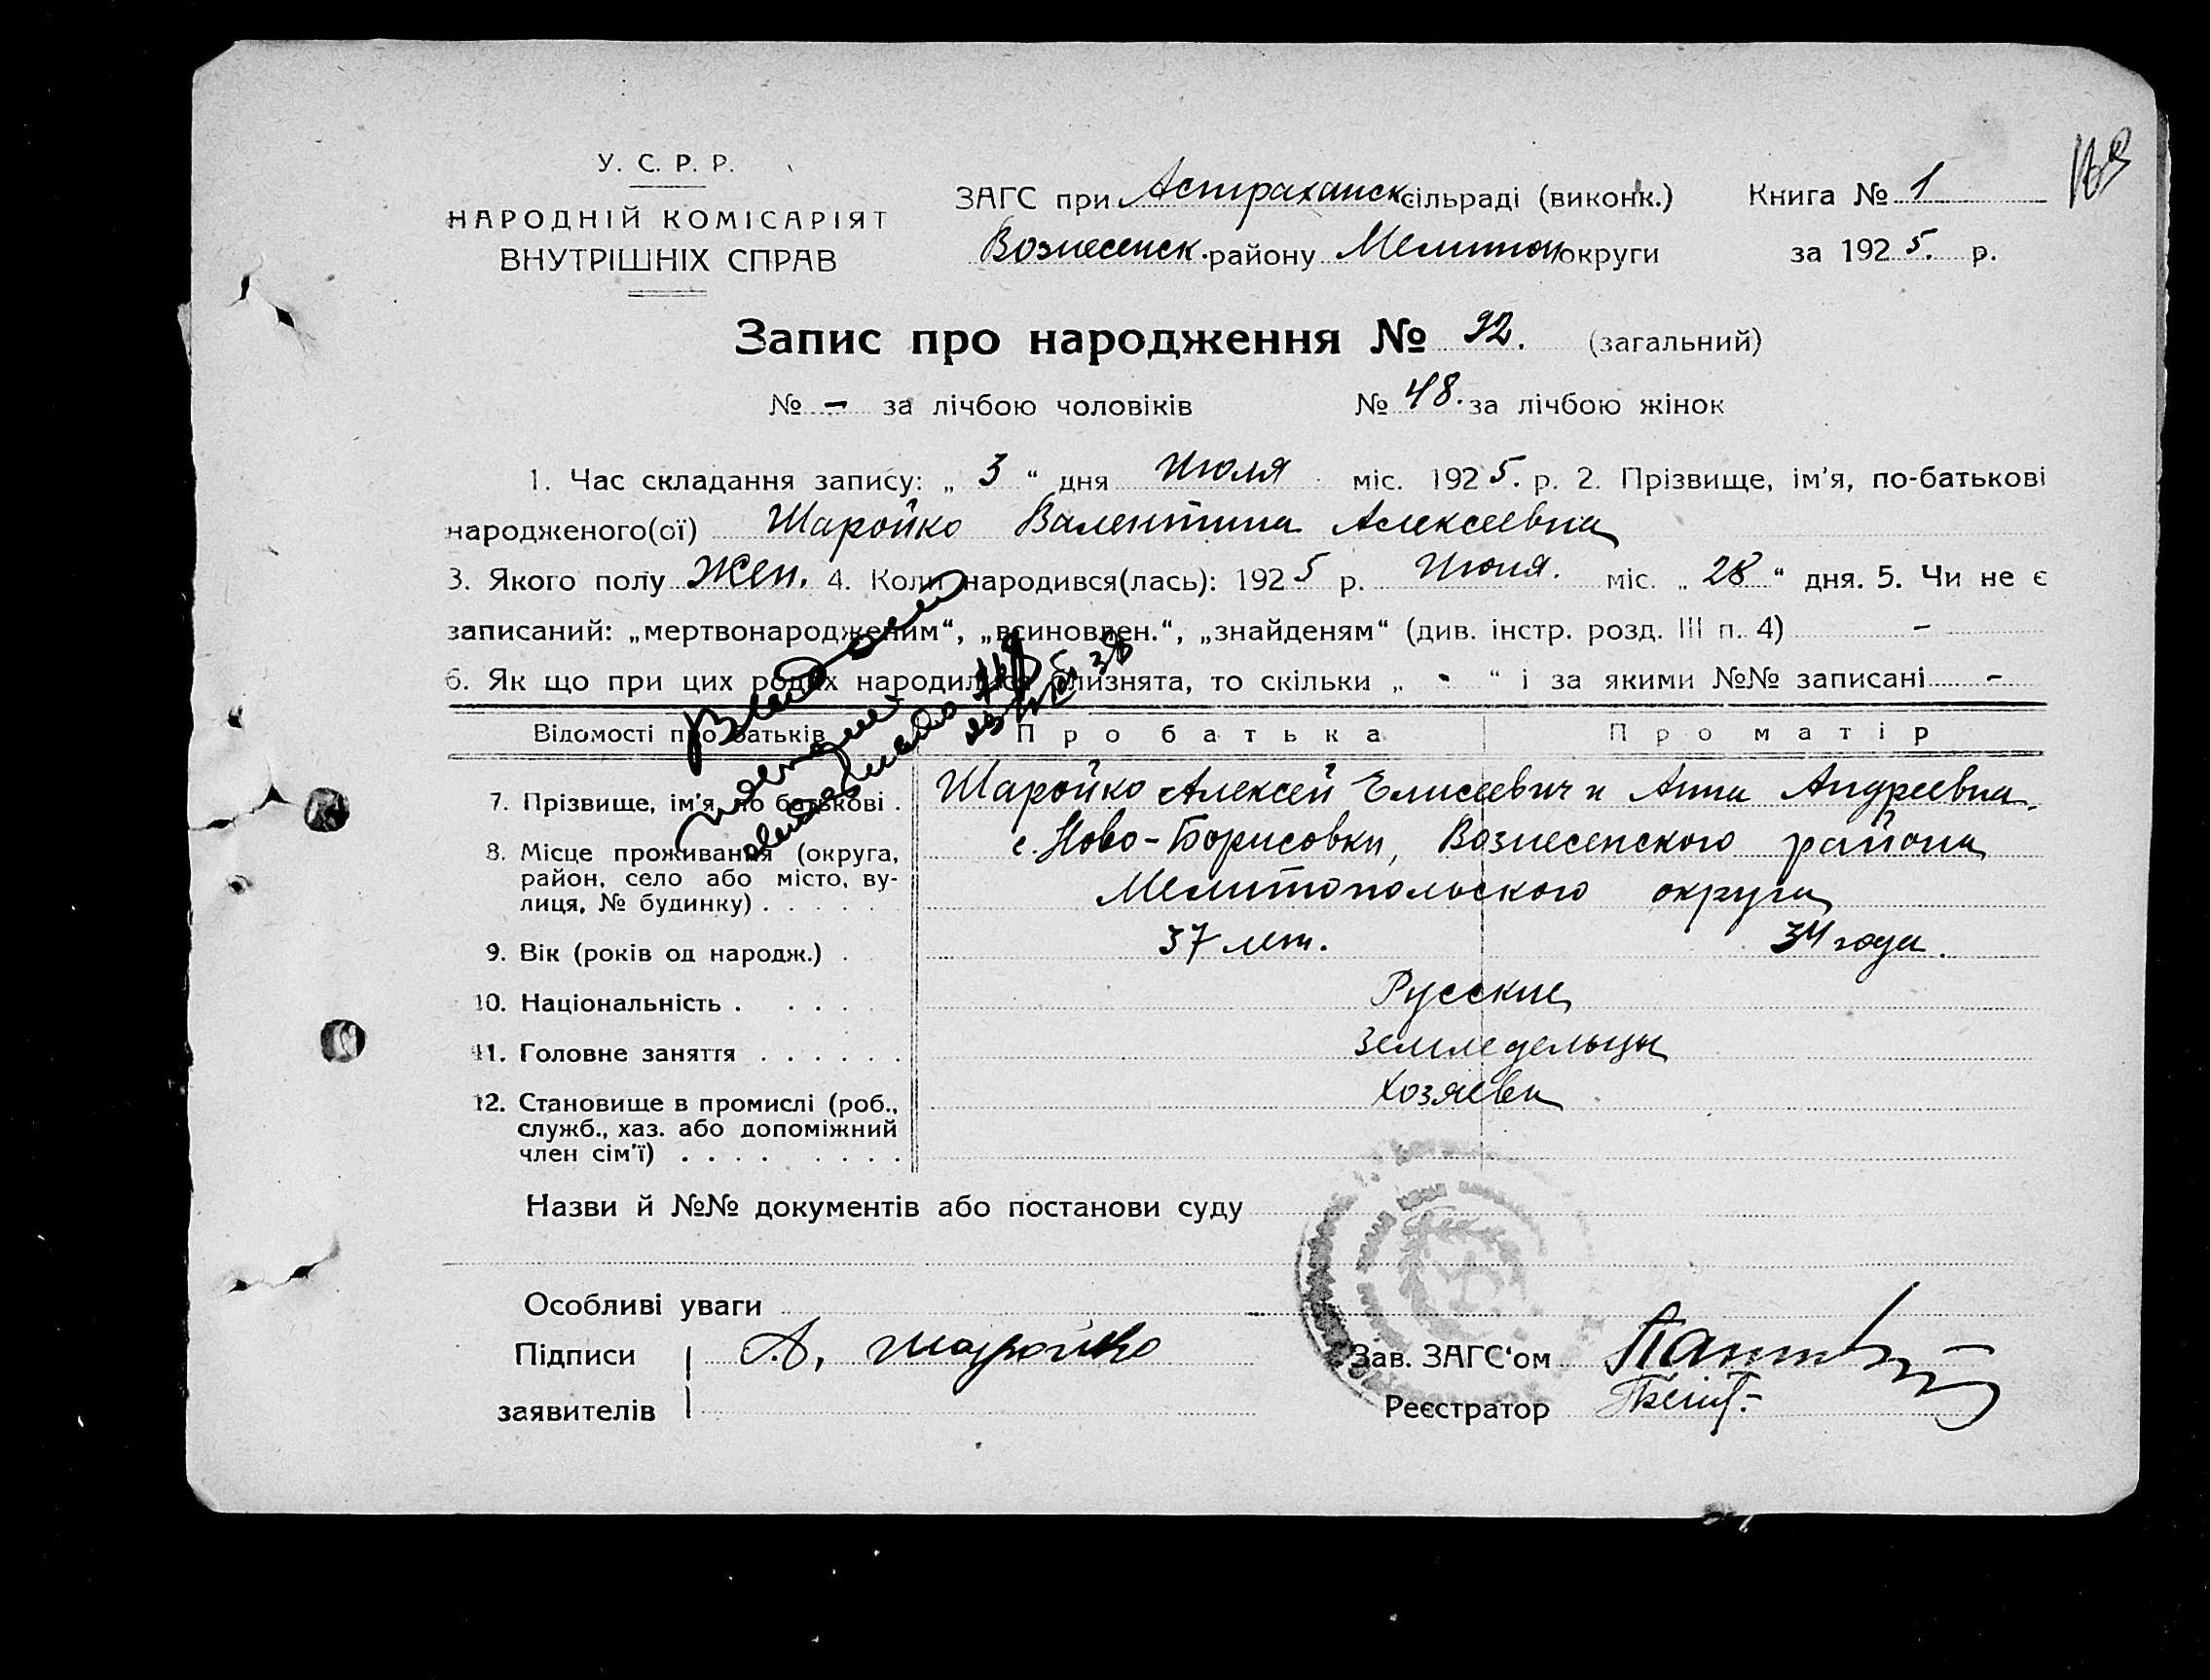 У. С. Р. Р.
НАРОДНІЙ КОМІСАРІЯТ
ВНУТРІШНІХ СПРАВ
ЗАГС при Астраханск сільраді (виконк.)
Вознесенск. району Мелитоп округи
Книга № 1
за 1925. р.
Запис про народження № 92. (загальний)
№ - за лічбою чоловіків № 48. за лічбою жінок
1. Час складання запису: „ 3 “ дня Июля міс. 1925. р. 2. Прізвище, ім'я, по-батькові
народженого(ої) Шаройко Валентина Алексеевна
3. Якого полу Жен. 4. Коли народився(лась): 1925 р. Июня. міс. „ 28 “ дня. 5. Чи не є
записаний: „мертвонародженим“, „всиновлен.“, „знайденям“ (див. інстр. розд. III п. 4) -
6. Як що при цих родах народилися близнята, то скільки „ - “ і за якими №№ записані -
Відомості про батьків Про батька Про матір
7. Прізвище, ім'я, по батькові . Шаройко Алексей Елисеевич и Анна Андреевна.
8. Місце проживання (округа, с. Ново-Борисовки, Вознесенского района
район, село або місто, ву- Мелитопольского округа
лиця, № будинку) . . . . .
9. Вік (років од народж.) . 37 лет. 34 года.
10. Національність . . . . . Русские
11. Головне заняття . . . . . . Земледельцы
12. Становище в промислі (роб., Хозяева
служб., хаз. або допоміжний
член сім'ї) . . . . . . . .
Назви й №№ документів або постанови суду
Особливі уваги
Підписи А. Шаройко Зав. ЗАГС'ом
заявителів Реєстратор